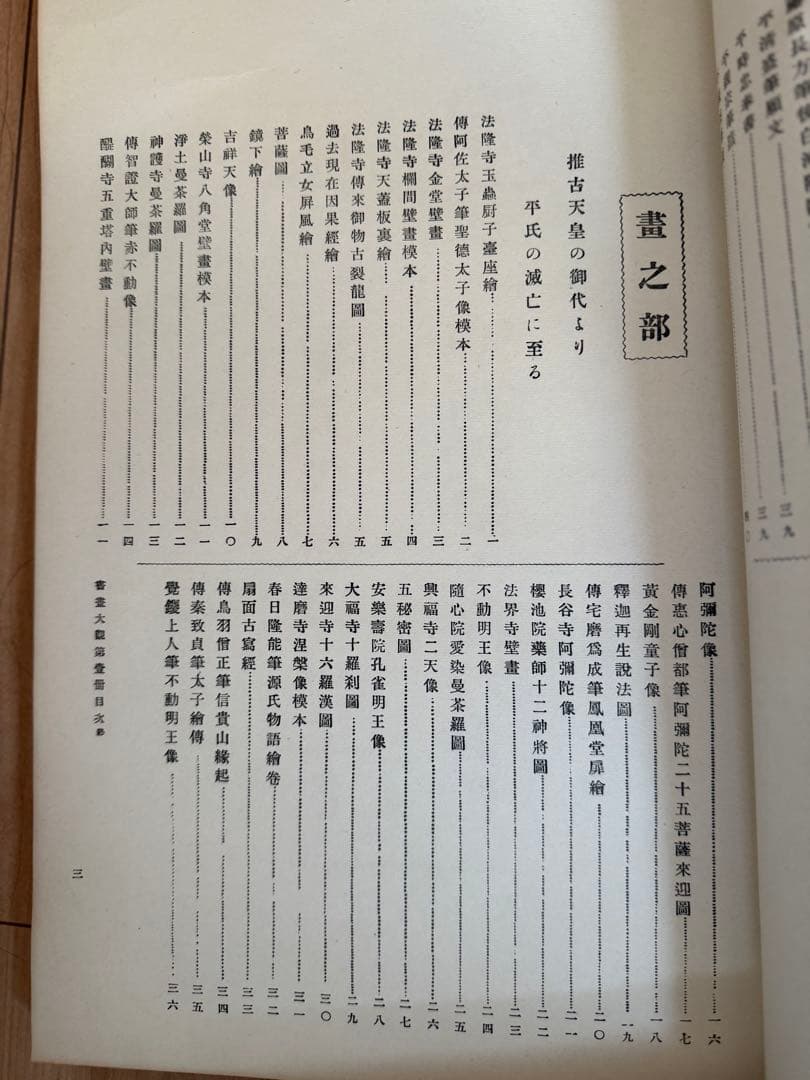 畫之部
推古天皇の御代より
平氏の滅亡に至る
法隆寺玉蟲厨子臺座繪……一
傳阿佐太子筆聖德太子像模本……二
法隆寺金堂壁畫……三
法隆寺欄間壁畫模本……四
法隆寺天蓋板裏繪……五
法隆寺傳來御物古裂龍圖……五
過去現在因果經繪……六
鳥毛立女屏風繪……七
菩薩圖……八
鏡下繪……九
吉祥天像……一〇
榮山寺八角堂壁畫模本……一一
淨土曼荼羅圖……一二
神護寺曼荼羅圖……一三
傳智證大師筆赤不動像……一四
醍醐寺五重塔內壁畫……一一
阿彌陀像……一六
傳惠心僧都筆阿彌陀二十五菩薩來迎圖……一七
黃金剛童子像……一八
釋迦再生說法圖……一九
傳宅磨爲成筆鳳凰堂扉繪……二〇
長谷寺阿彌陀像……二一
櫻池院藥師十二神將圖……二二
法界寺壁畫……二三
不動明王像……二四
隨心院愛染曼荼羅圖……二五
興福寺二天像……二六
五秘密圖……二七
安樂壽院孔雀明王像……二八
大福寺十羅刹圖……二九
來迎寺十六羅漢圖……三〇
達磨寺涅槃像模本……三一
春日隆能筆源氏物語繪卷……三二
扇面古寫經……三三
傳鳥羽僧正筆信貴山緣起……三四
傳秦致貞筆太子繪傳……三五
覺鑁上人筆不動明王像……三六
書畫大觀第壹册目次終
三